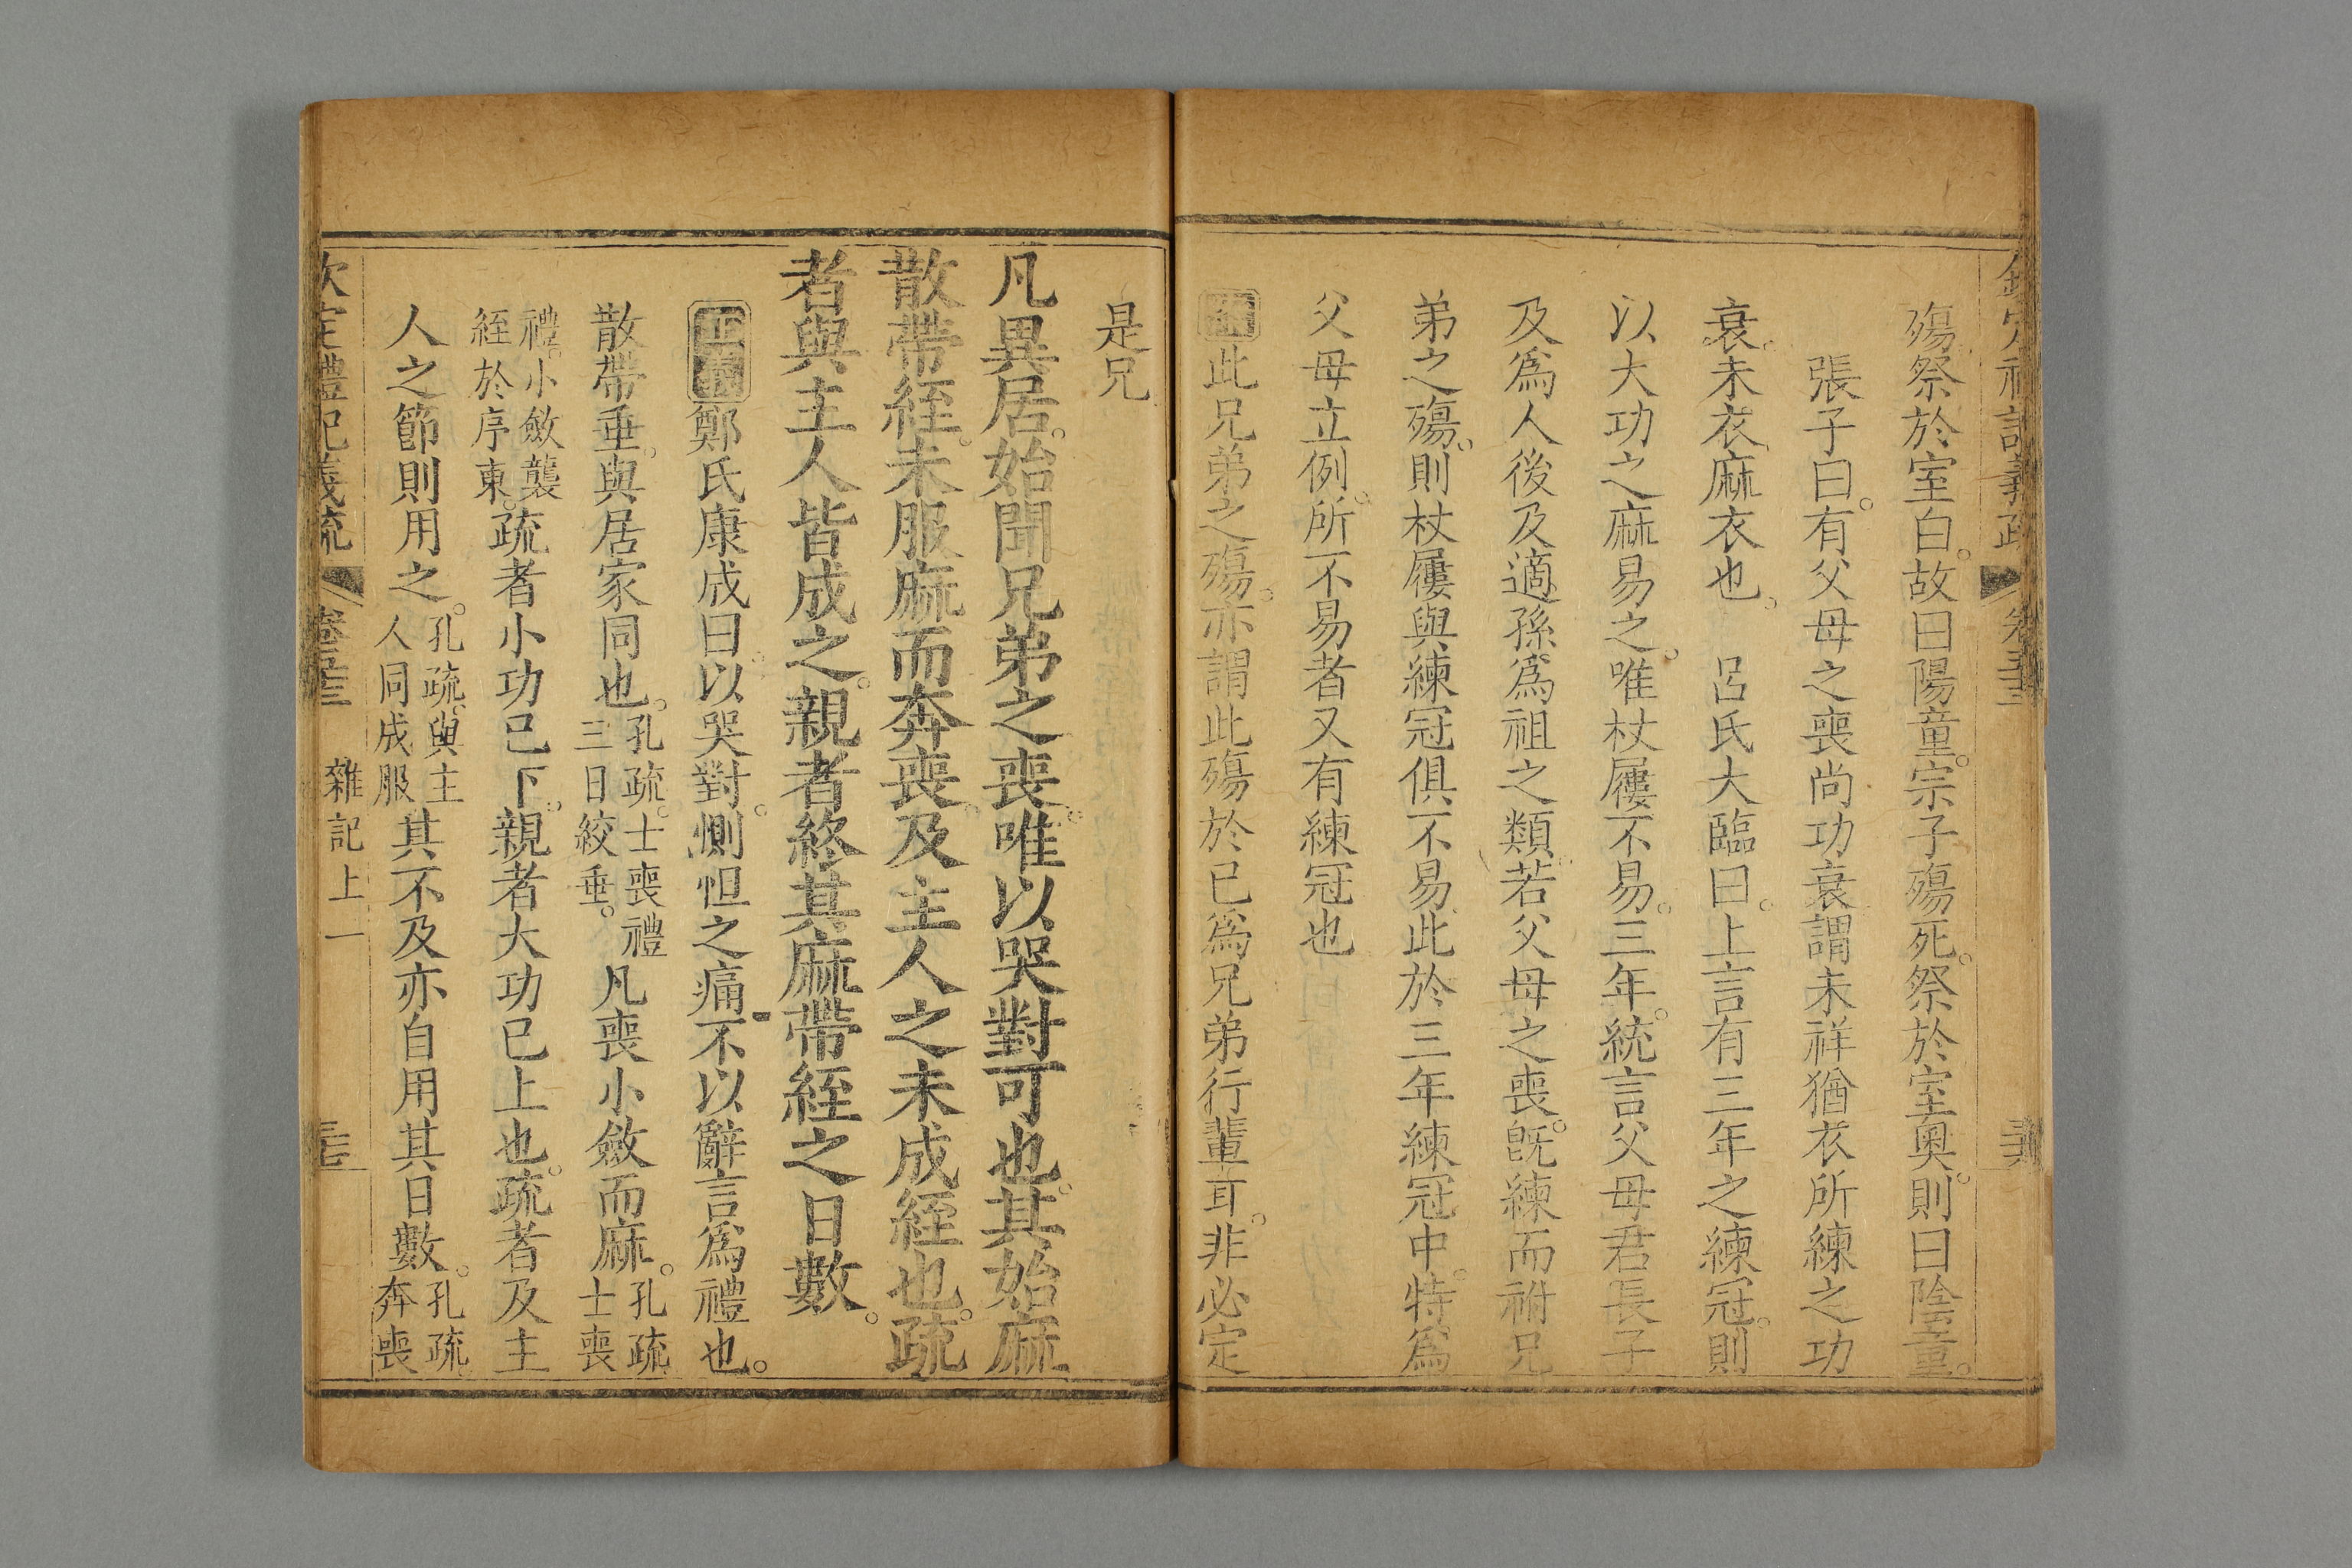 殤祭於室白。故曰陽童。宗子殤死。祭於室奧。則曰陰童。
張子曰。有父母之喪尚功衰謂未祥猶衣所練之功
衰。未衣麻衣也。　呂氏大臨曰。上言有三年之練冠。則
以大功之麻易之。唯杖屨不易。三年。統言父母君長子
及爲人後及適孫爲祖之類。若父母之喪。旣練而祔兄
弟之殤。則杖屨與練冠俱不易。此於三年練冠中。特爲
父母立例。所不易者又有練冠也
此兄弟之殤。亦謂此殤於已爲兄弟行輩耳。非必定
是兄
凡異居。始聞兄弟之喪。唯以哭對可也。其始麻
散帶絰。未服麻而奔喪。及主人之未成絰也。疏
者與主人皆成之。親者終其麻帶絰之日數。
正義鄭氏康成曰。以哭對。惻怛之痛不以辭言爲禮也。
散帶垂。與居家同也。孔疏。士喪禮三日絞垂。凡喪小斂而麻。孔疏士喪
禮。小斂襲絰於序東。疏者小功已下。親者大功已上也。疏者及主
人之節則用之。孔疏。與主人同成服其不及亦自用其日數。孔疏。奔喪
欽定禮記義疏　卷五十三　雜記上一　三七